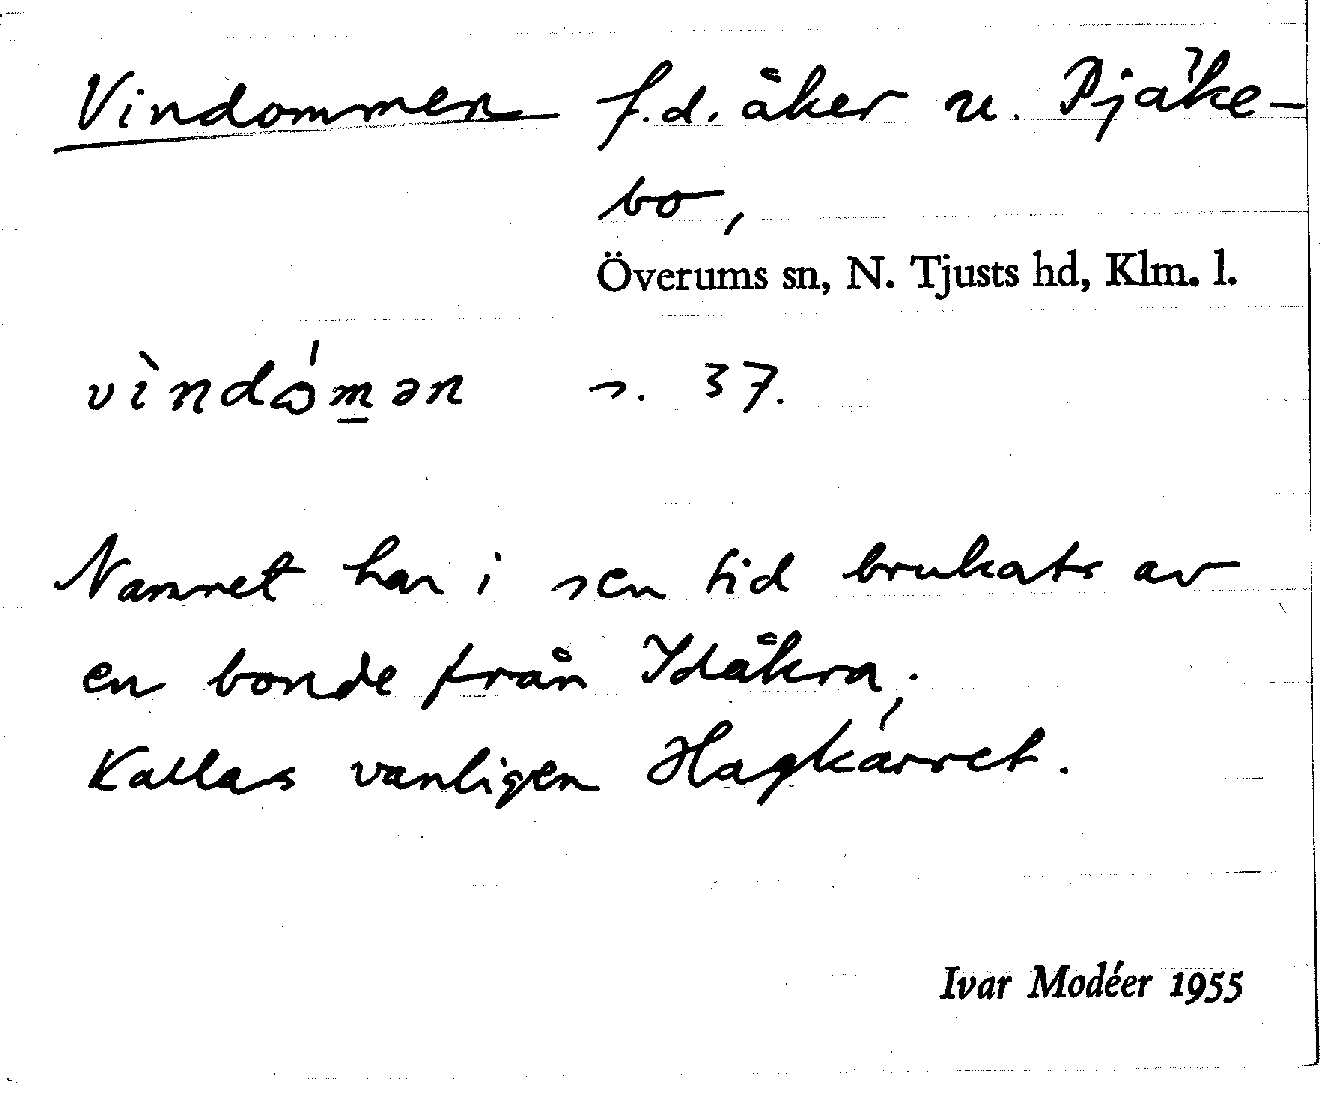 Vindommen f.d. åker u. Pjäke-
bo,
Överums sn, N. Tjusts hd, Klm. l.
vìndɷ́m̲ən s. 37.
Namnet har i sen tid brukats av
en bonde från Idåkra;
Kallas vanligen Hagkärret.
Ivar Modéer 1955